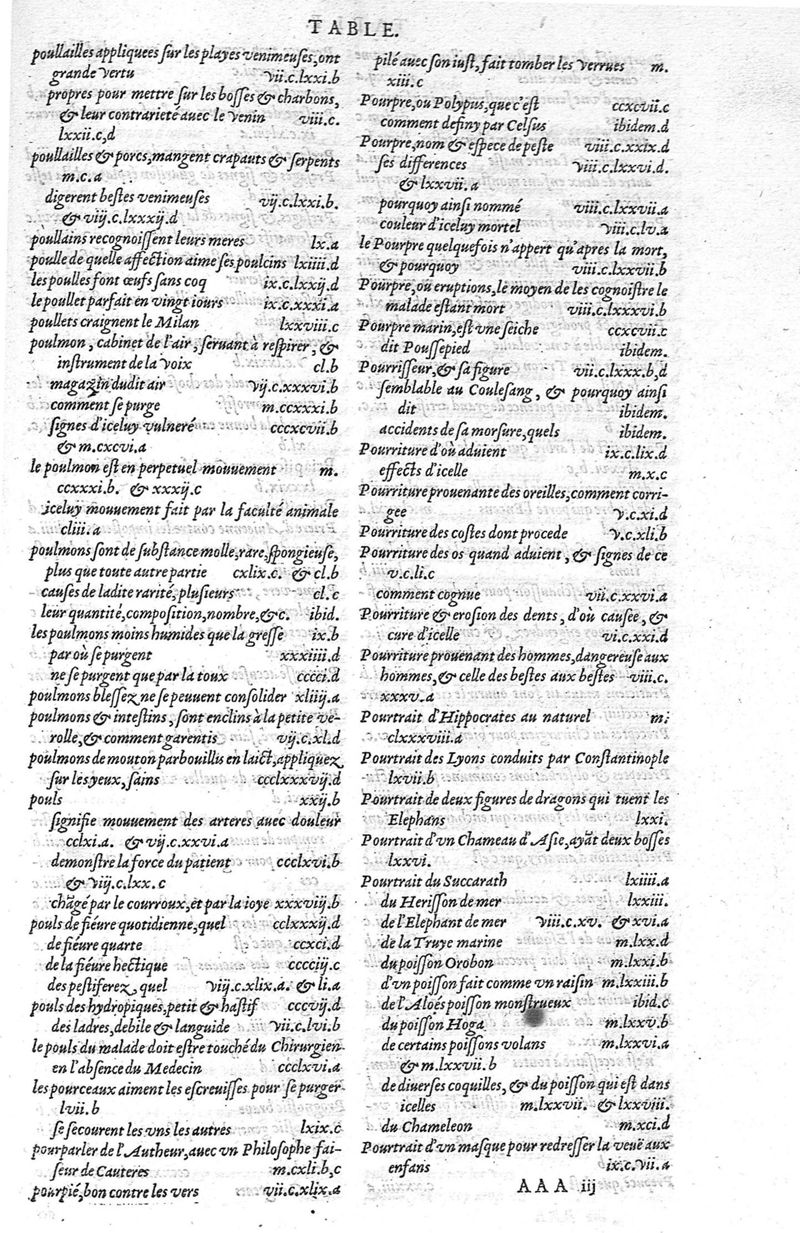 TABLE.
poullailles appliquees sur les playes venimeuses, ont
grande vertu vii.c.lxxi.b
propres pour mettre sur les bosses & charbons,
& leur contrarieté auec le venin viii.c.
lxxii.c,d
poullailles & porcs, mangent crapauts & serpents
m.c.a
digerent bestes venimeuses vij.c.lxxi.b.
& viij.c.lxxxij.d
poullains recognoissent leurs meres lx.a
poulle de quelle affection aime ses poulcins lxiiii.d
les poulles font œufs sans coq ix.c.lxxij.d
le poullet parfait en vingt iours ix.c.xxxi.a
poullets craignent le Milan lxxviii.c
poulmon, cabinet de l'air, seruant à respirer, &
instrument de la voix cl.b
magazin dudit air vij.c.xxxvi.b
comment se purge m.ccxxxi.b
signes d'iceluy vulneré cccxcvii.b
& m.cxcvi.a
le poulmon est en perpetuel mouuement m.
ccxxxi.b. & xxxij.c
iceluy mouuement fait par la faculté animale
cliii.a
poulmons sont de substance molle, rare, spongieuse,
plus que toute autre partie cxlix.c. & cl.b
causes de ladite rarité, plusieurs cl.c
leur quantité, composition, nombre, &c. ibid.
les poulmons moins humides que la gresse ix.b
par où se purgent xxxiiii.d
ne se purgent que par la toux cccci.d
poulmons blessez ne se peuuent consolider xliij.a
poulmons & intestins, sont enclins à la petite ve-
rolle, & comment garentis vij.c.xl.d
poulmons de mouton parbouillis en laict, appliquez
sur les yeux, sains ccclxxxvij.d
pouls xxij.b
signifie mouuement des arteres auec douleur
cclxi.a. & vij.c.xxvi.a
demonstre la force du patient ccclxvi.b
& viij.c.lxx.c
chãgé par le courroux, et par la ioye xxxviij.b
pouls de fiéure quotidienne, quel cclxxxij.d
de fiéure quarte ccxci.d
de la fiéure hectique cccciij.c
des pestiferez, quel viij.c.xlix.a. & li.a
pouls des hydropiques, petit & hastif cccvij.d
des ladres, debile & languide vii.c.lvi.b
le pouls du malade doit estre touché du Chirurgien
en l'absence du Medecin ccclxvi.a
les pourceaux aiment les escreuisses pour se purger
lvii.b
se secourent les vns les autres lxix.c
pourparler de l'Autheur, auec vn Philosophe fai-
seur de Cauteres m.cxli.b,c
pourpié, bon contre les vers vii.c.xlix.a
pilé auec son iust, fait tomber les verrues m.
xiii.c
Pourpre, ou Polypus, que c'est ccxcvii.c
comment definy par Celsus ibidem.d
Pourpre, nom & espece de peste viii.c.xxix.d
ses differences viii.c.lxxvi.d.
& lxxvii.a
pourquoy ainsi nommé viii.c.lxxvii.a
couleur d'iceluy mortel viii.c.lv.a
le Pourpre quelquefois n'appert qu'apres la mort,
& pourquoy viii.c.lxxvii.b
Pourpre, ou eruptions, le moyen de les cognoistre le
malade estant mort viii.c.lxxxvi.b
Pourpre marin, est vne seiche ccxcvii.c
dit Poussepied ibidem.
Pourrisseur, & sa figure vii.c.lxxx.b,d
semblable au Coulesang, & pourquoy ainsi
dit ibidem.
accidents de sa morsure, quels ibidem.
Pourriture d'où aduient ix.c.lix.d
effects d'icelle m.x.c
Pourriture prouenante des oreilles, comment corri-
gee v.c.xi.d
Pourriture des costes dont procede v.c.xli.b
Pourriture des os quand aduient, & signes de ce
v.c.li.c
comment cognue vii.c.xxvi.a
Pourriture & erosion des dents, d'où causee, &
cure d'icelle vi.c.xxi.d
Pourriture prouenant des hommes, dangereuse aux
hommes, & celle des bestes aux bestes viii.c.
xxxv.a
Pourtrait d'Hippocrates au naturel m.
clxxxviii.a
Pourtrait des Lyons conduits par Constantinople
lxvii.b
Pourtrait de deux figures de dragons qui tuent les
Elephans lxxi.
Pourtrait d'vn Chameau d'Asie, ayãt deux bosses
lxxvi.
Pourtrait du Succarath lxiiii.a
du Herisson de mer lxxiii.
de l'Elephant de mer viii.c.xv. & xvi.a
de la Truye marine m.lxx.d
du poisson Orobon m.lxxi.b
d'vn poisson fait comme vn raisin m.lxxiii.b
de l'Aloés poisson monstrueux ibid.c
du poisson Hoga m.lxxv.b
de certains poissons volans m.lxxvi.a
& m.lxxvii.b
de diuerses coquilles, & du poisson qui est dans
icelles m.lxxvii. & lxxviii.
du Chameleon m.xci.d
Pourtrait d'vn masque pour redresser la veuë aux
enfans ix.c.vii.a
AAA iij